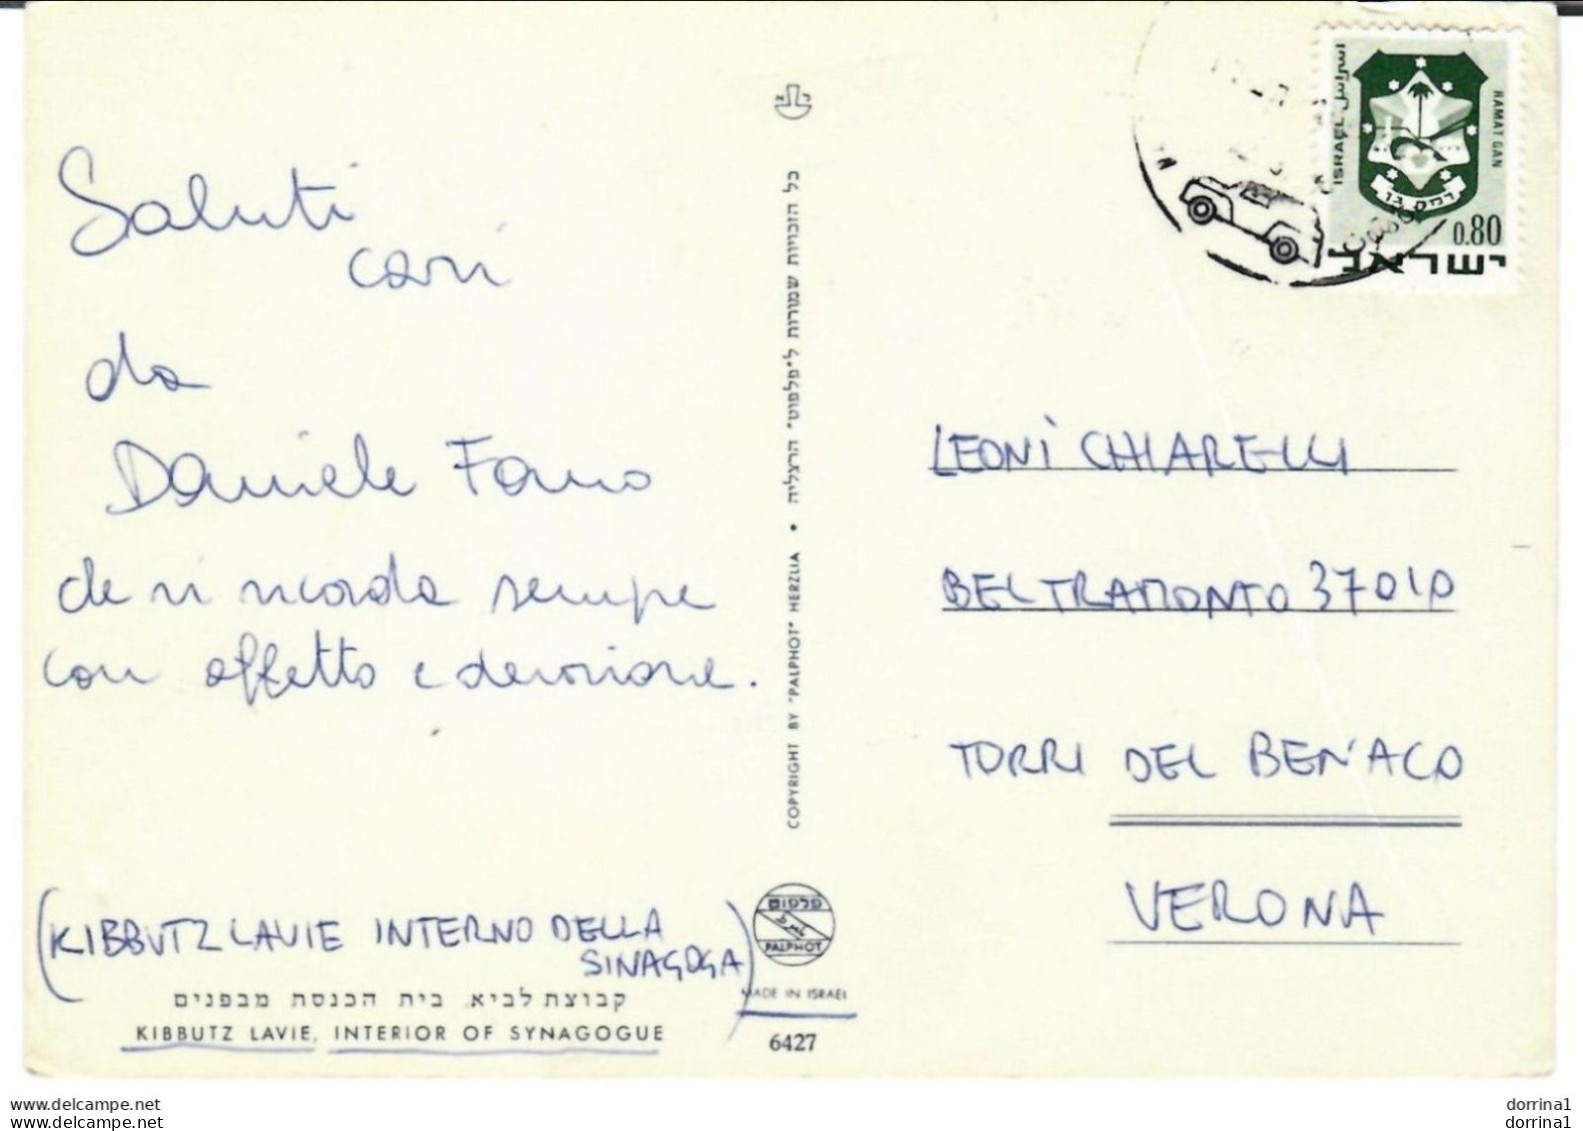 Saluti
cari
da
Daniele Fano
che vi ricorda sempre
con affetto e devozione.
(KIBBUTZ LAVIE INTERNO DELLA
SINAGOGA)
קבוצת לביא, בית הכנסת מבפנים
KIBBUTZ LAVIE, INTERIOR OF SYNAGOGUE
כל הזכויות שמורות ל״פלפוט״ הרצליה
COPYRIGHT BY "PALPHOT" HERZLIA •
פלפוט
PALPHOT
MADE IN ISRAEL
6427
اسرائيل
ISRAEL
RAMAT GAN
רמת גן
0.80
ישראל
LEONI CHIARELLI
BELTRAMONTO 37010
TORRI DEL BENACO
VERONA
delcampe.net
delcampe.net
dorrina1
dorrina1